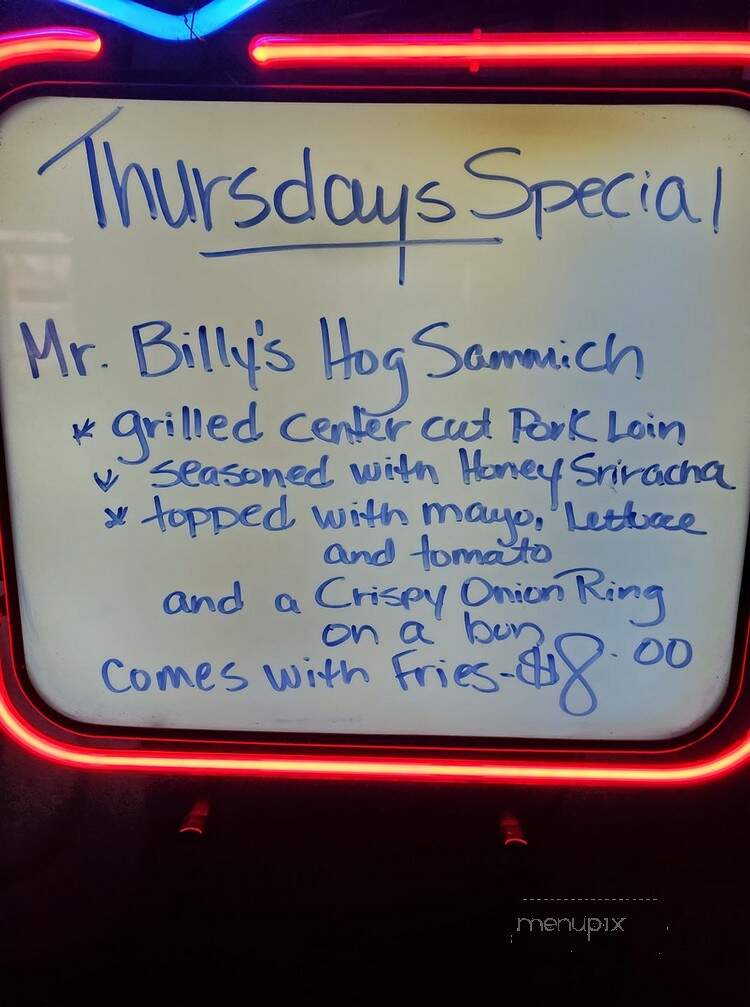 Thursdays Special
Mr. Billy's Hog Sammich
* grilled center cut Pork Loin
* seasoned with Honey Sriracha
* topped with mayo, Lettuce
and tomato
and a Crispy Onion Ring
on a bun
comes with Fries-$8.00
menupix